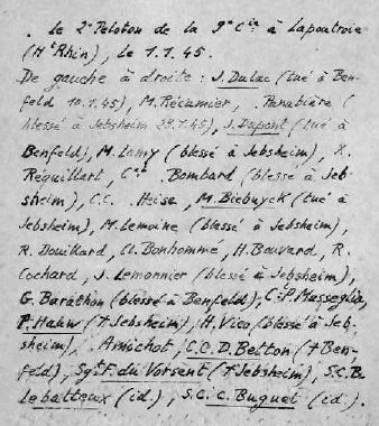 . Le 2e Peloton de la 9e Cie à Lapoutroie
(Ht Rhin), le 1.1.45.
De gauche à droite : J. Dulac (tué à Ben-
feld 10.1.45), M. Récamier, . Panabière (
blessé à Jebsheim 29.1.45), J. Dupont (tué à
Benfeld), M. Lamy (blessé à Jebsheim), X.
Réquillart, Bombard (blessé à Jeb-
sheim), C.C. Heise, M. Biebuyck (tué à
Jebsheim), M. Lemoine (blessé à Jebsheim),
R. Douillard, Cl. Bonhommé, H. Bouvard, R.
Cochard, J. Lemonnier (blessé à Jebsheim),
G. Barathon (blessé à Benfeld), C.P. Masseglia,
P. Hahn († Jebsheim), H. Vico (blessé à Jeb-
sheim), . Amichot, C.C. D. Betton († Ben-
feld), Sgt F. du Vorsent († Jebsheim), S.C. B.
Lebatteux (id.), S.C. C. Buguet (id.).